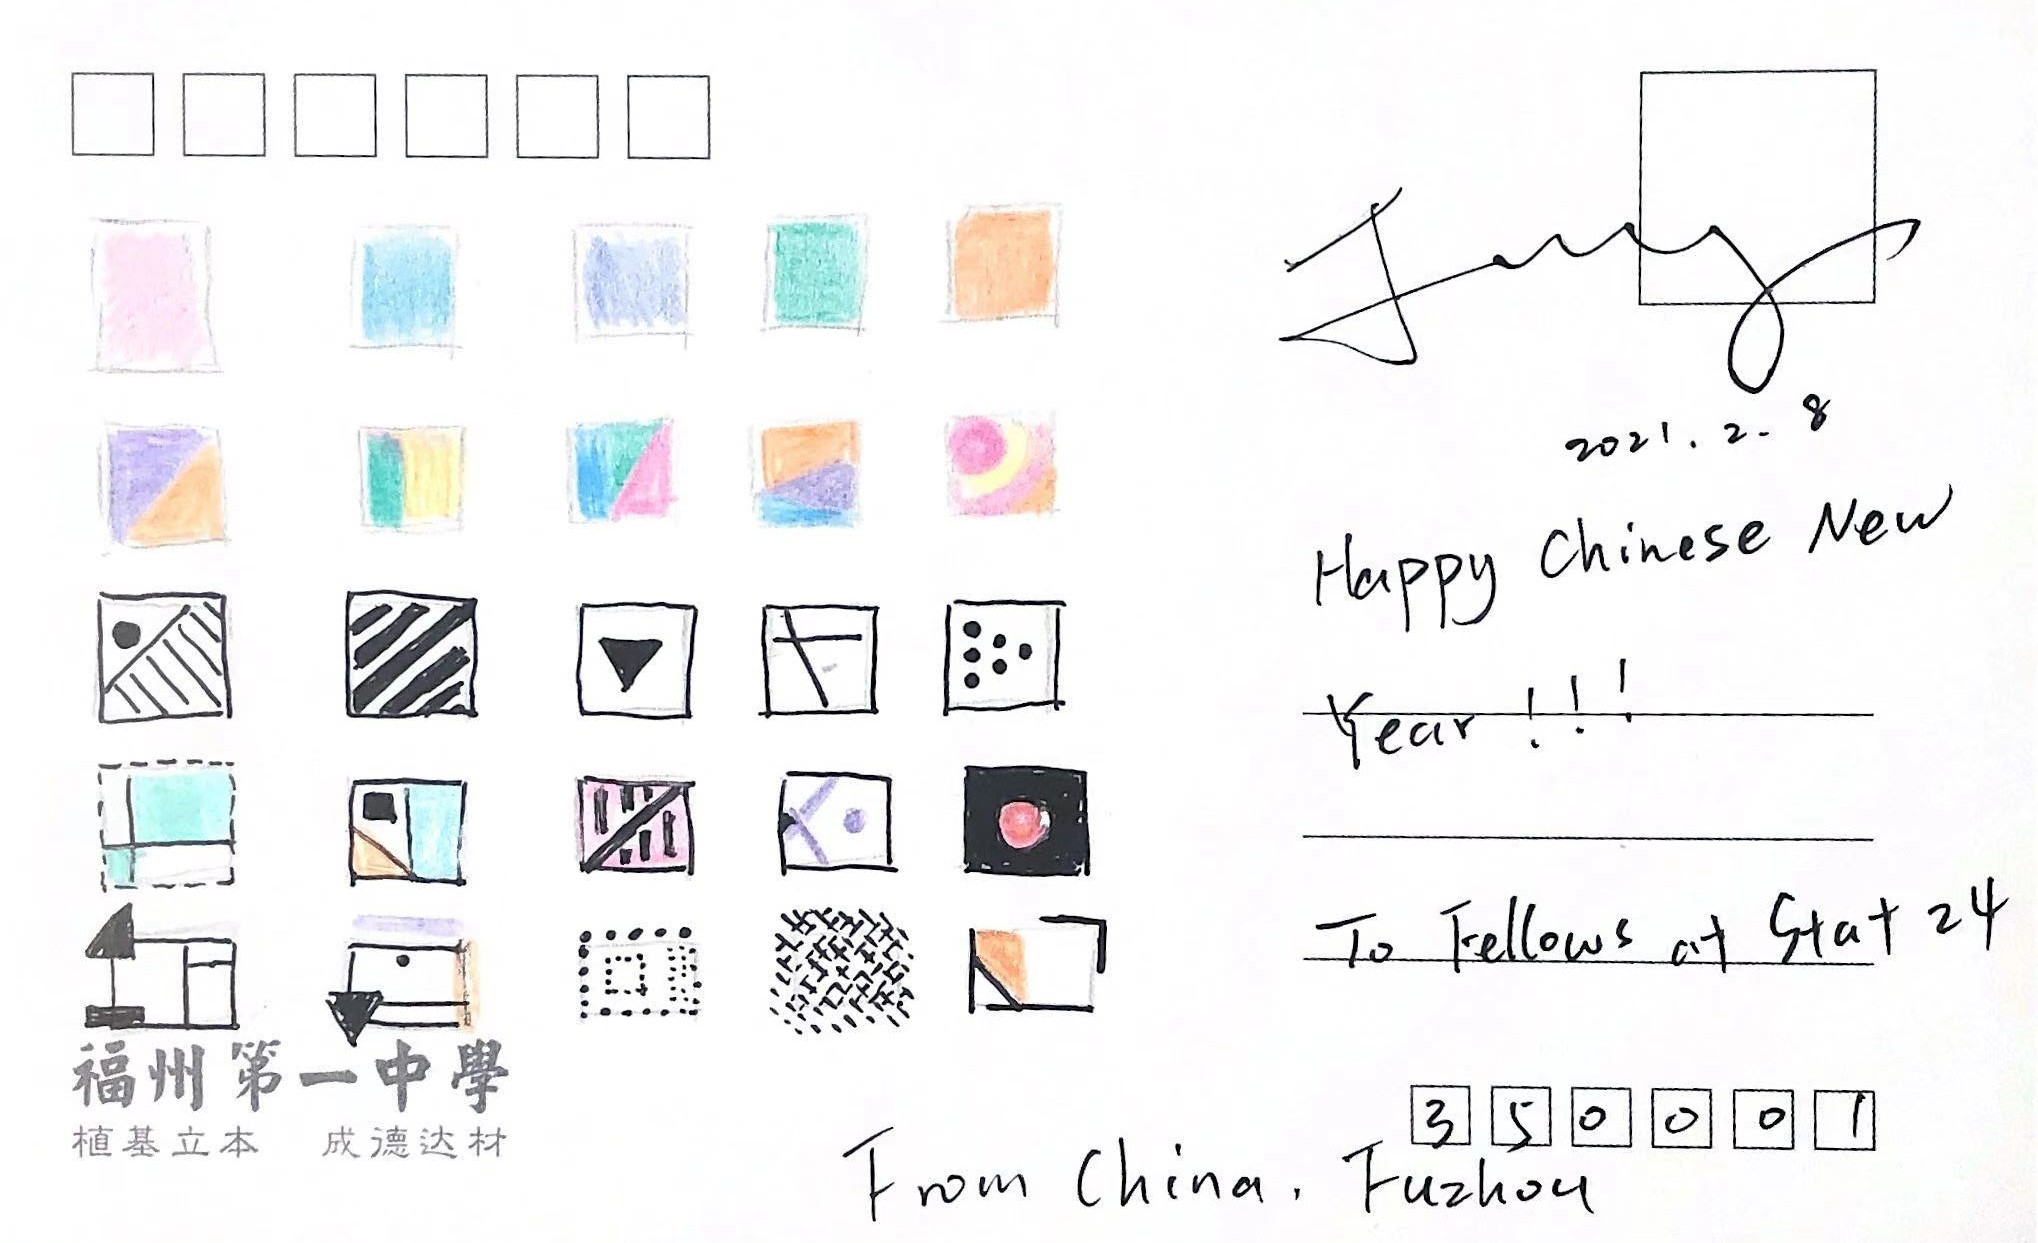 2021.2.8
Happy Chinese New
Year!!!
To Fellows at Stat 24
福州第一中學
植基立本 成德达材
350001
From China. Fuzhou